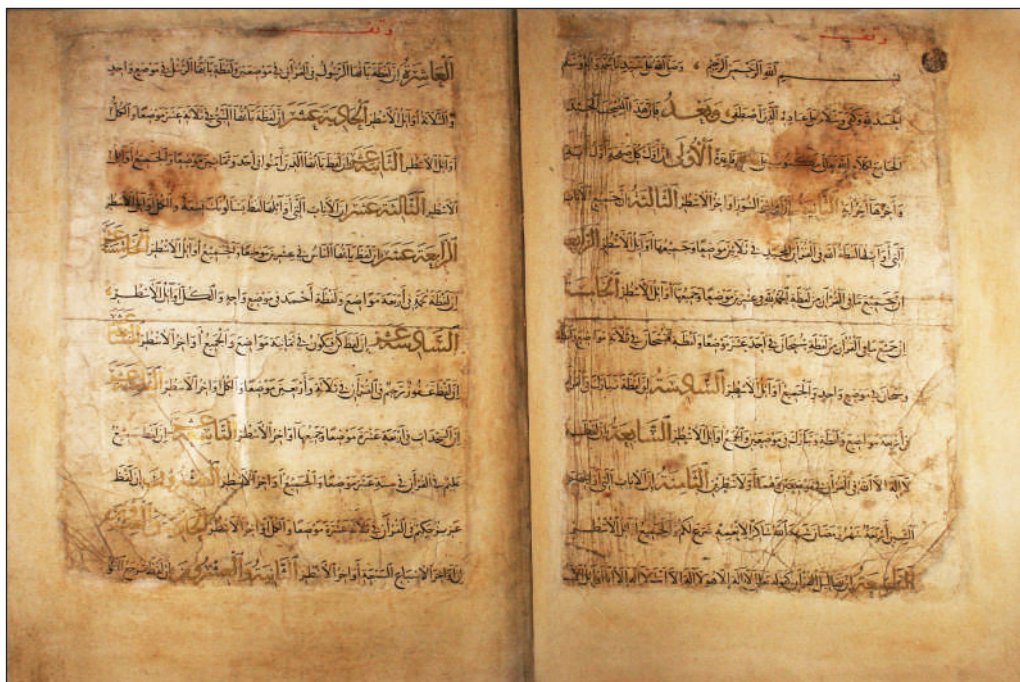 وقف
بسم الله الرحمن الرحيم وصلى الله على سيدنا محمد وآله وسلم
الحمد لله وكفى وسلام على عباده الذين اصطفى وبعد فإن هذا المصحف المجيد
الجامع لكلام الله فايدة الأولى أن أول كل صفحة أول آية
وآخرها آخر آية الثانية أن أوايل السور أواخر الأسطر الثالثة أن جميع الآيات
التي أوايلها لفظة الله في القرآن المجيد في ثلاثين موضعا وجميعها أوايل الأسطر الرابعة
إن جميع ما في القرآن من لفظة الحمد لله في عشرين موضعا وجميعها أوايل الأسطر الخامسة
إن جميع ما في القرآن من لفظة سبحان في أحد عشر موضعا ولفظة فسبحان في ثلاثة مواضع ولفظة
وسبحان في موضع واحد والجميع أوايل الأسطر السادسة إن لفظة تبارك في القرآن
في أربعة مواضع ولفظة وتبارك في موضعين والجميع أوايل الأسطر السابعة إن لفظة
لا إله إلا الله في القرآن في موضعين وهما أول سطرين الثامنة إن الآيات التي
أربعة شهر رمضان شهد الله شاكرا لأنعمه شرع لكم والجميع أوايل الأسطر
التاسعة إن تهاليل القرآن كقوله تعالى لا إله إلا هو لا إله إلا أنت لا إله إلا أنا أوايل
وقف
العاشرة إن لفظة يا أيها الرسول في القرآن في موضعين ولفظة يا أيها الرسل في موضع واحد
والثلاثة أوايل الأسطر الحادية عشر إن لفظة يا أيها النبي في ثلاثة عشر موضعا والكل
أوايل الأسطر الثانية عشر إن لفظ يا أيها الذين آمنوا في أحد وثمانين موضعا والجميع أوايل
الأسطر الثالثة عشر إن الآيات التي أوايلها لفظ يسألونك والكل أوايل الأسطر
الرابعة عشر إن لفظ يا أيها الناس في عشرين موضعا والجميع أوايل الأسطر الخامسة عشر
إن لفظة محمد في أربعة مواضع ولفظة أحمد في موضع واحد والكل أوايل الأسطر
السادسة عشر إن لفظ كن فيكون في ثمانية مواضع والجميع أواخر الأسطر السابعة عشر
إن لفظ غفور رحيم في القرآن في ثلاثة وأربعين موضعا والكل أواخر الأسطر الثامنة عشر
إن السجدات في أربعة عشرة موضعا وجميعها أواخر الأسطر التاسعة عشر إن لفظ سميع
عليم في القرآن في ستة عشر موضعا والجميع أواخر الأسطر العشرون إن لفظ
عزيز حكيم في القرآن في ثلاثة عشرة موضعا والكل أواخر الأسطر الحادية والعشرون
إن أواخر الأسباع السبعة أواخر الأسطر الثانية والعشرون إن لفظ